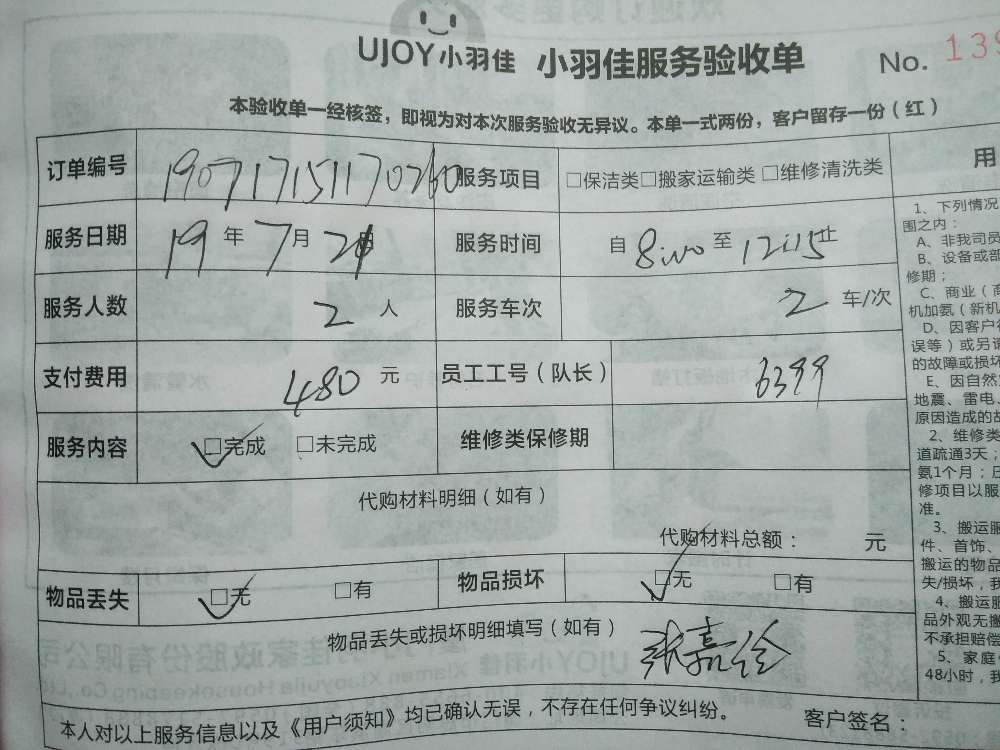 UJOY小羽佳 小羽佳服务验收单 No. 139
本验收单一经核签，即视为对本次服务验收无异议。本单一式两份，客户留存一份（红）
订单编号 190717151170260 服务项目 □保洁类□搬家运输类 □维修清洗类
服务日期 19 年 7 月 21日 服务时间 自 8:00 至 12:15 止
服务人数 2 人 服务车次 2 车/次
支付费用 480 元 员工工号（队长） 6399
服务内容 □完成 □未完成 维修类保修期
代购材料明细（如有）
代购材料总额： 元
物品丢失 □无 □有 物品损坏 □无 □有
物品丢失或损坏明细填写（如有）
本人对以上服务信息以及《用户须知》均已确认无误，不存在任何争议纠纷。 客户签名：
用
1、下列情况
围之内：
A、非我司员
B、设备或部
修期；
C、商业（商
机加氨（新机
D、因客户
误等）或另请
的故障或损坏
E、因自然
地震、雷电、
原因造成的故
2、维修类
道疏通3天；
氨1个月；庄
修项目以服
准。
3、搬运服
件、首饰、
搬运的物品
失/损坏，我
4、搬运服
品外观无搬
不承担赔偿
5、家庭
48小时，我